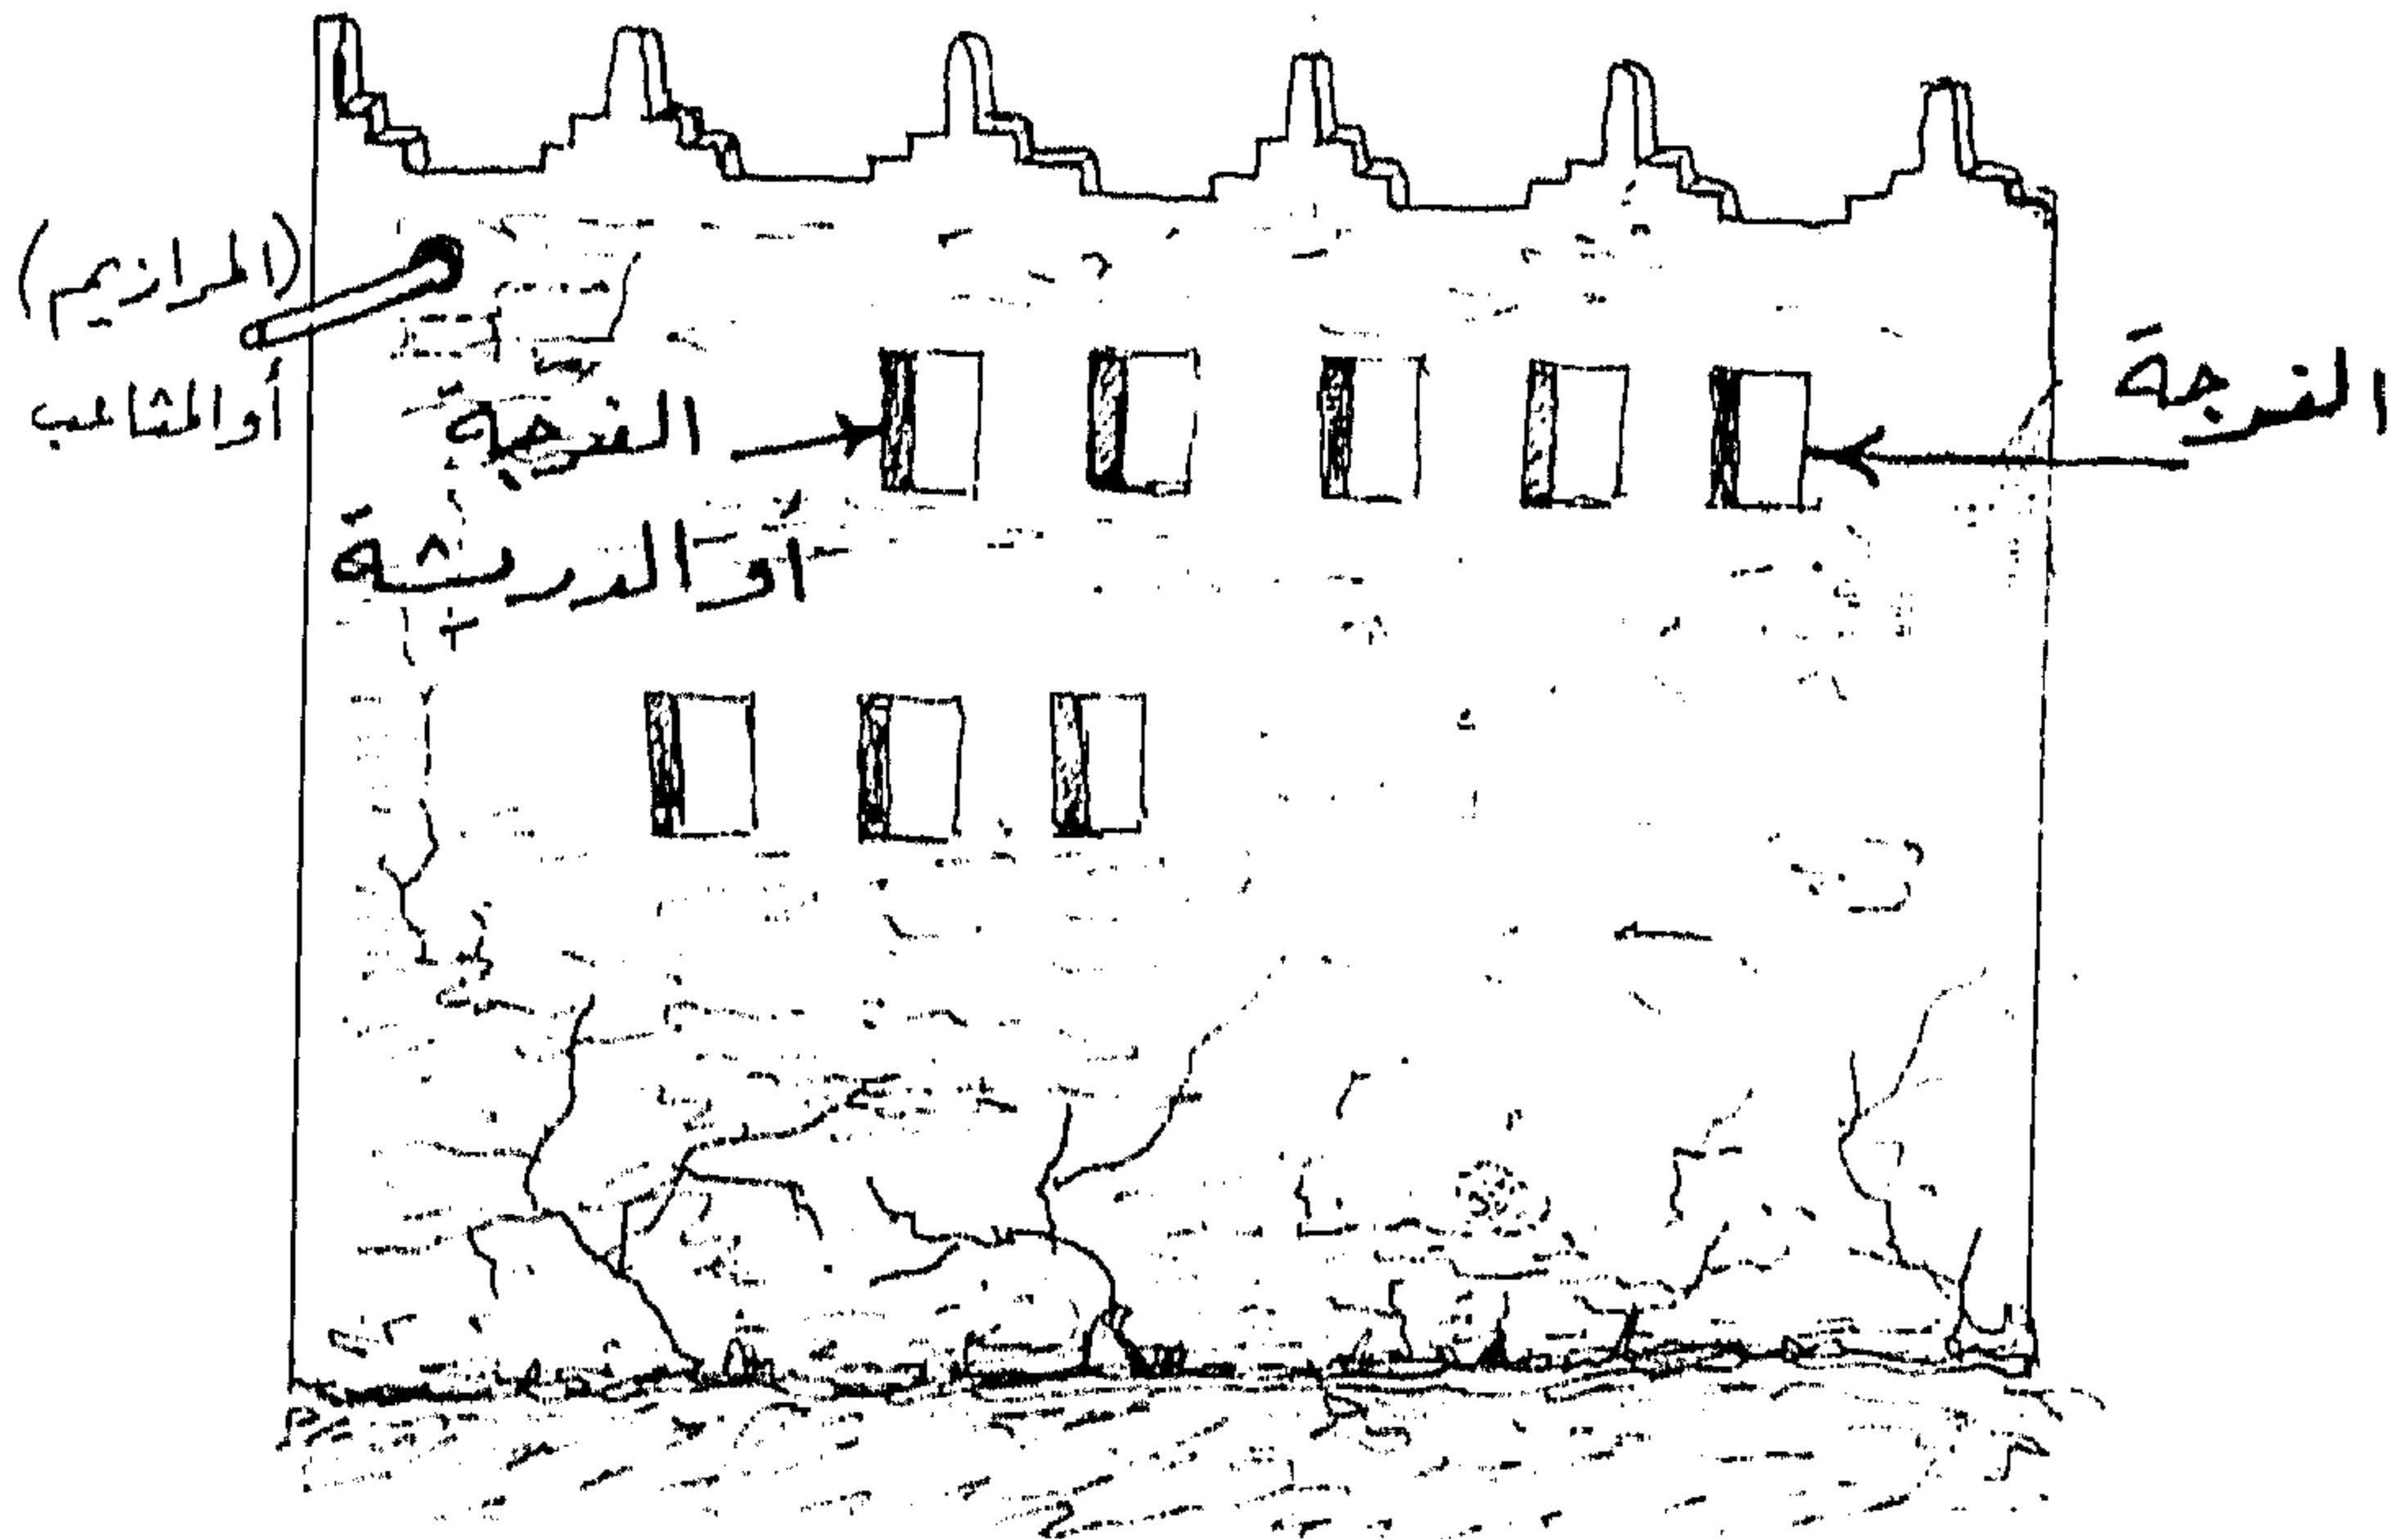 (المرازيم)
أو المثاعب
الفرجة
أو الدريشة
الفرجة